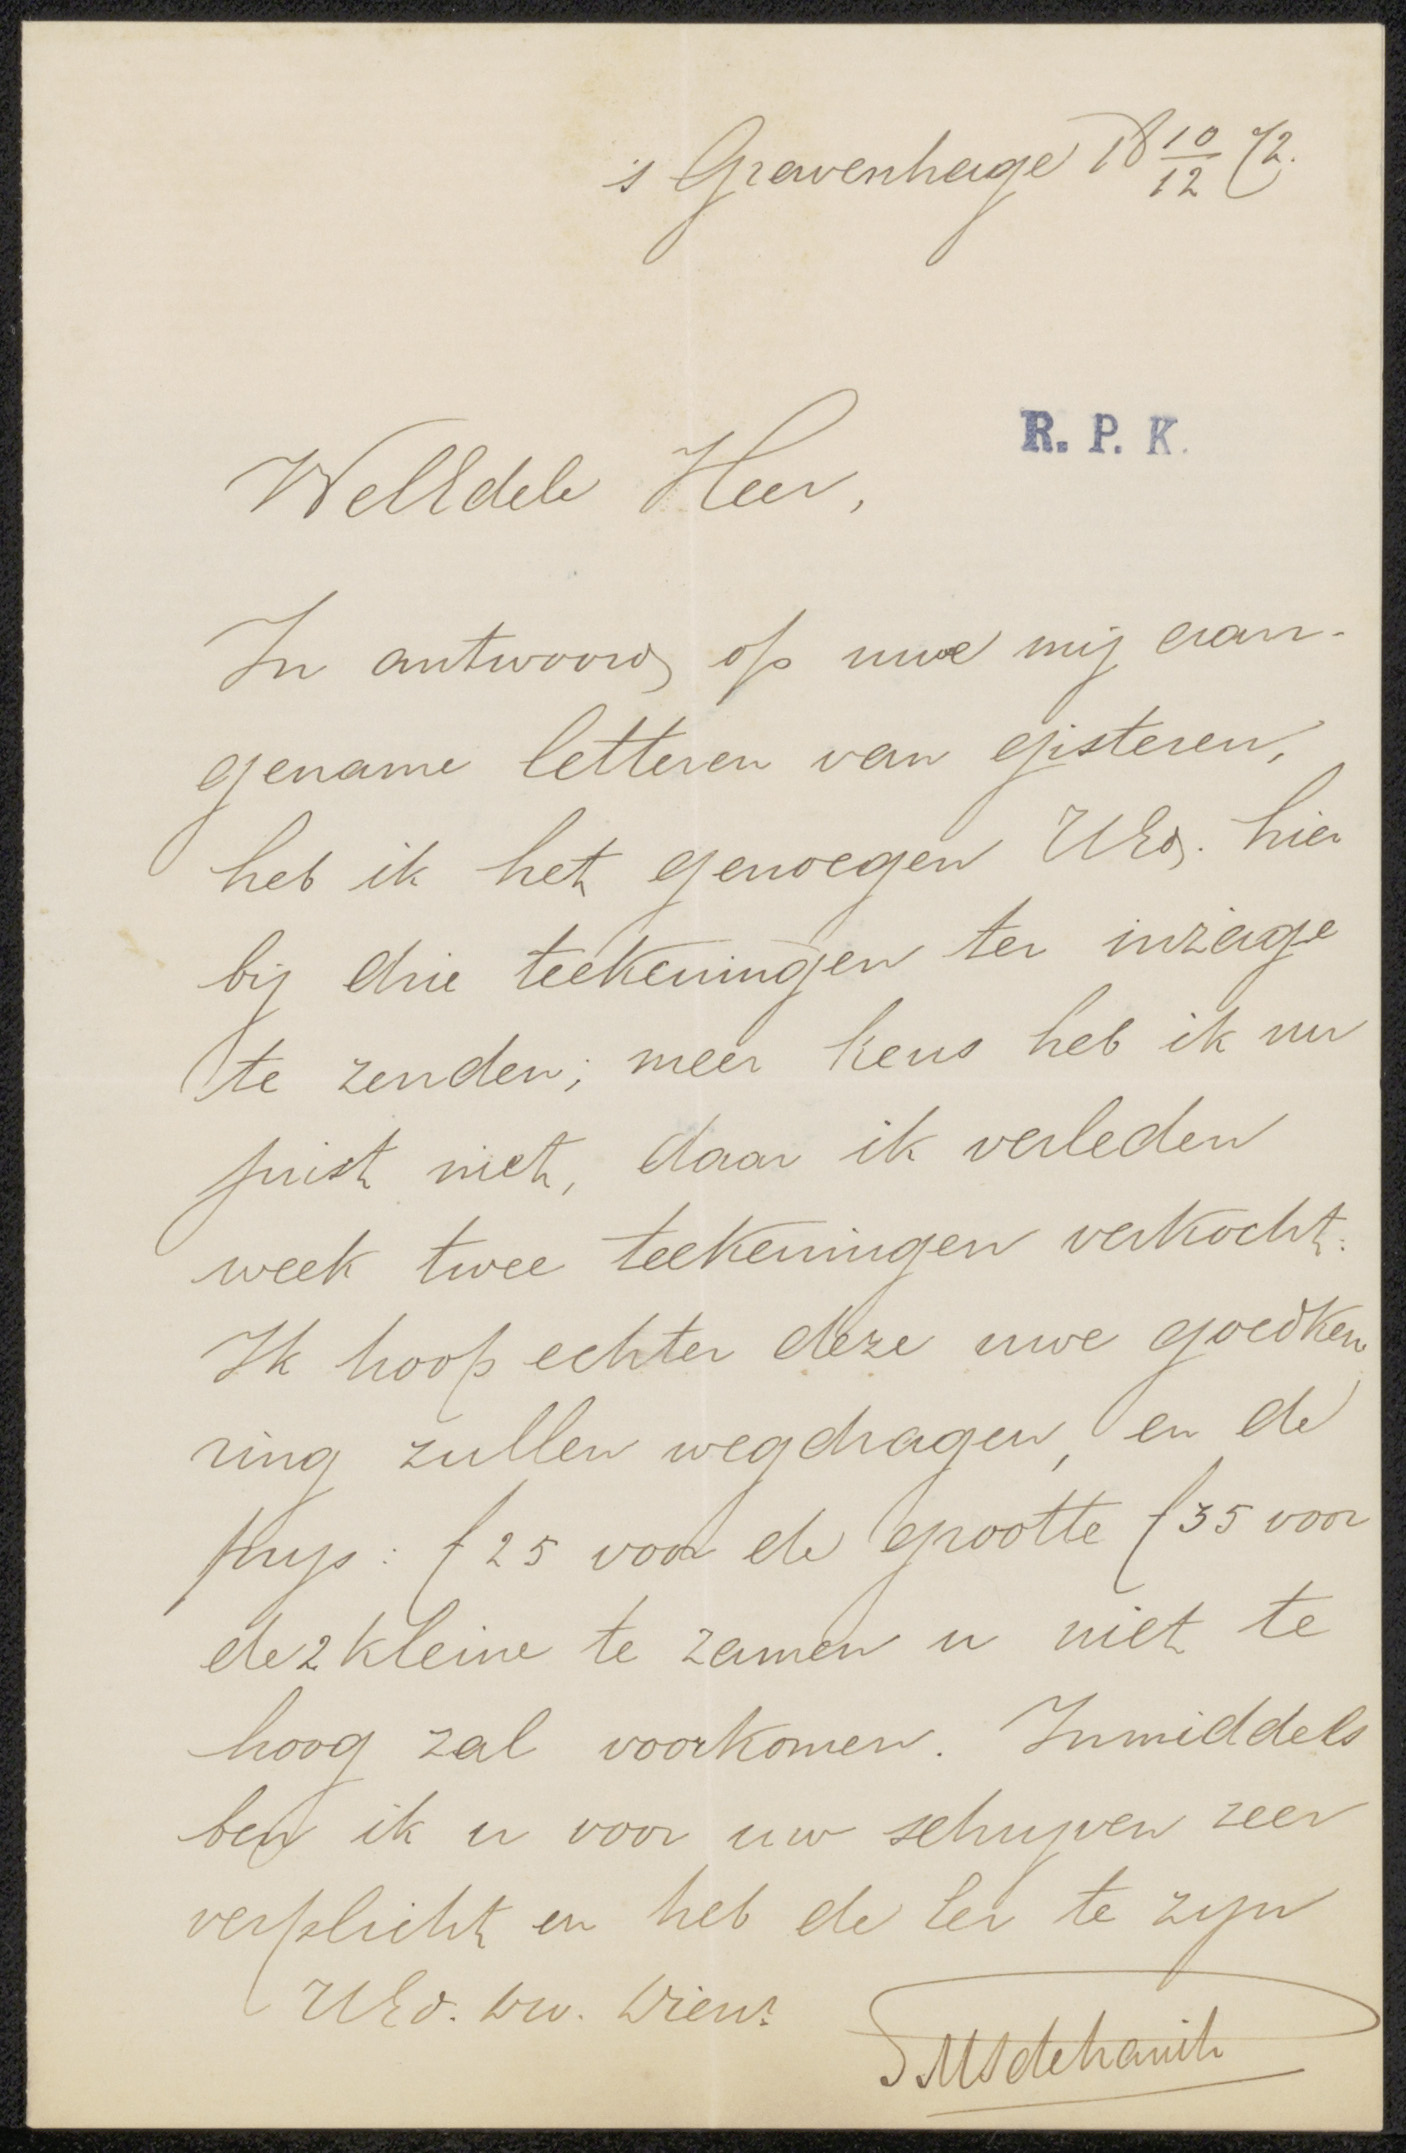 's Gravenhage 18 10/12 72.
R. P. K.
WelEdele Heer,
In antwoord op uwe mij aan-
gename letteren van gisteren,
heb ik het genoegen UEd. hier
bij drie teekeningen ter inzage
te zenden; meer keus heb ik nu
juist niet, daar ik verleden
week twee teekeningen verkocht.
Ik hoop echter deze uwe goedkeu
ring zullen wegdragen, en de
prys: f 25 voor de grootte f 35 voor
de 2 kleine te zamen u niet te
hoog zal voorkomen. Inmiddels
ben ik u voor uw schryven zeer
verplicht en heb de Eer te zyn
UEd. Dw. Dienr